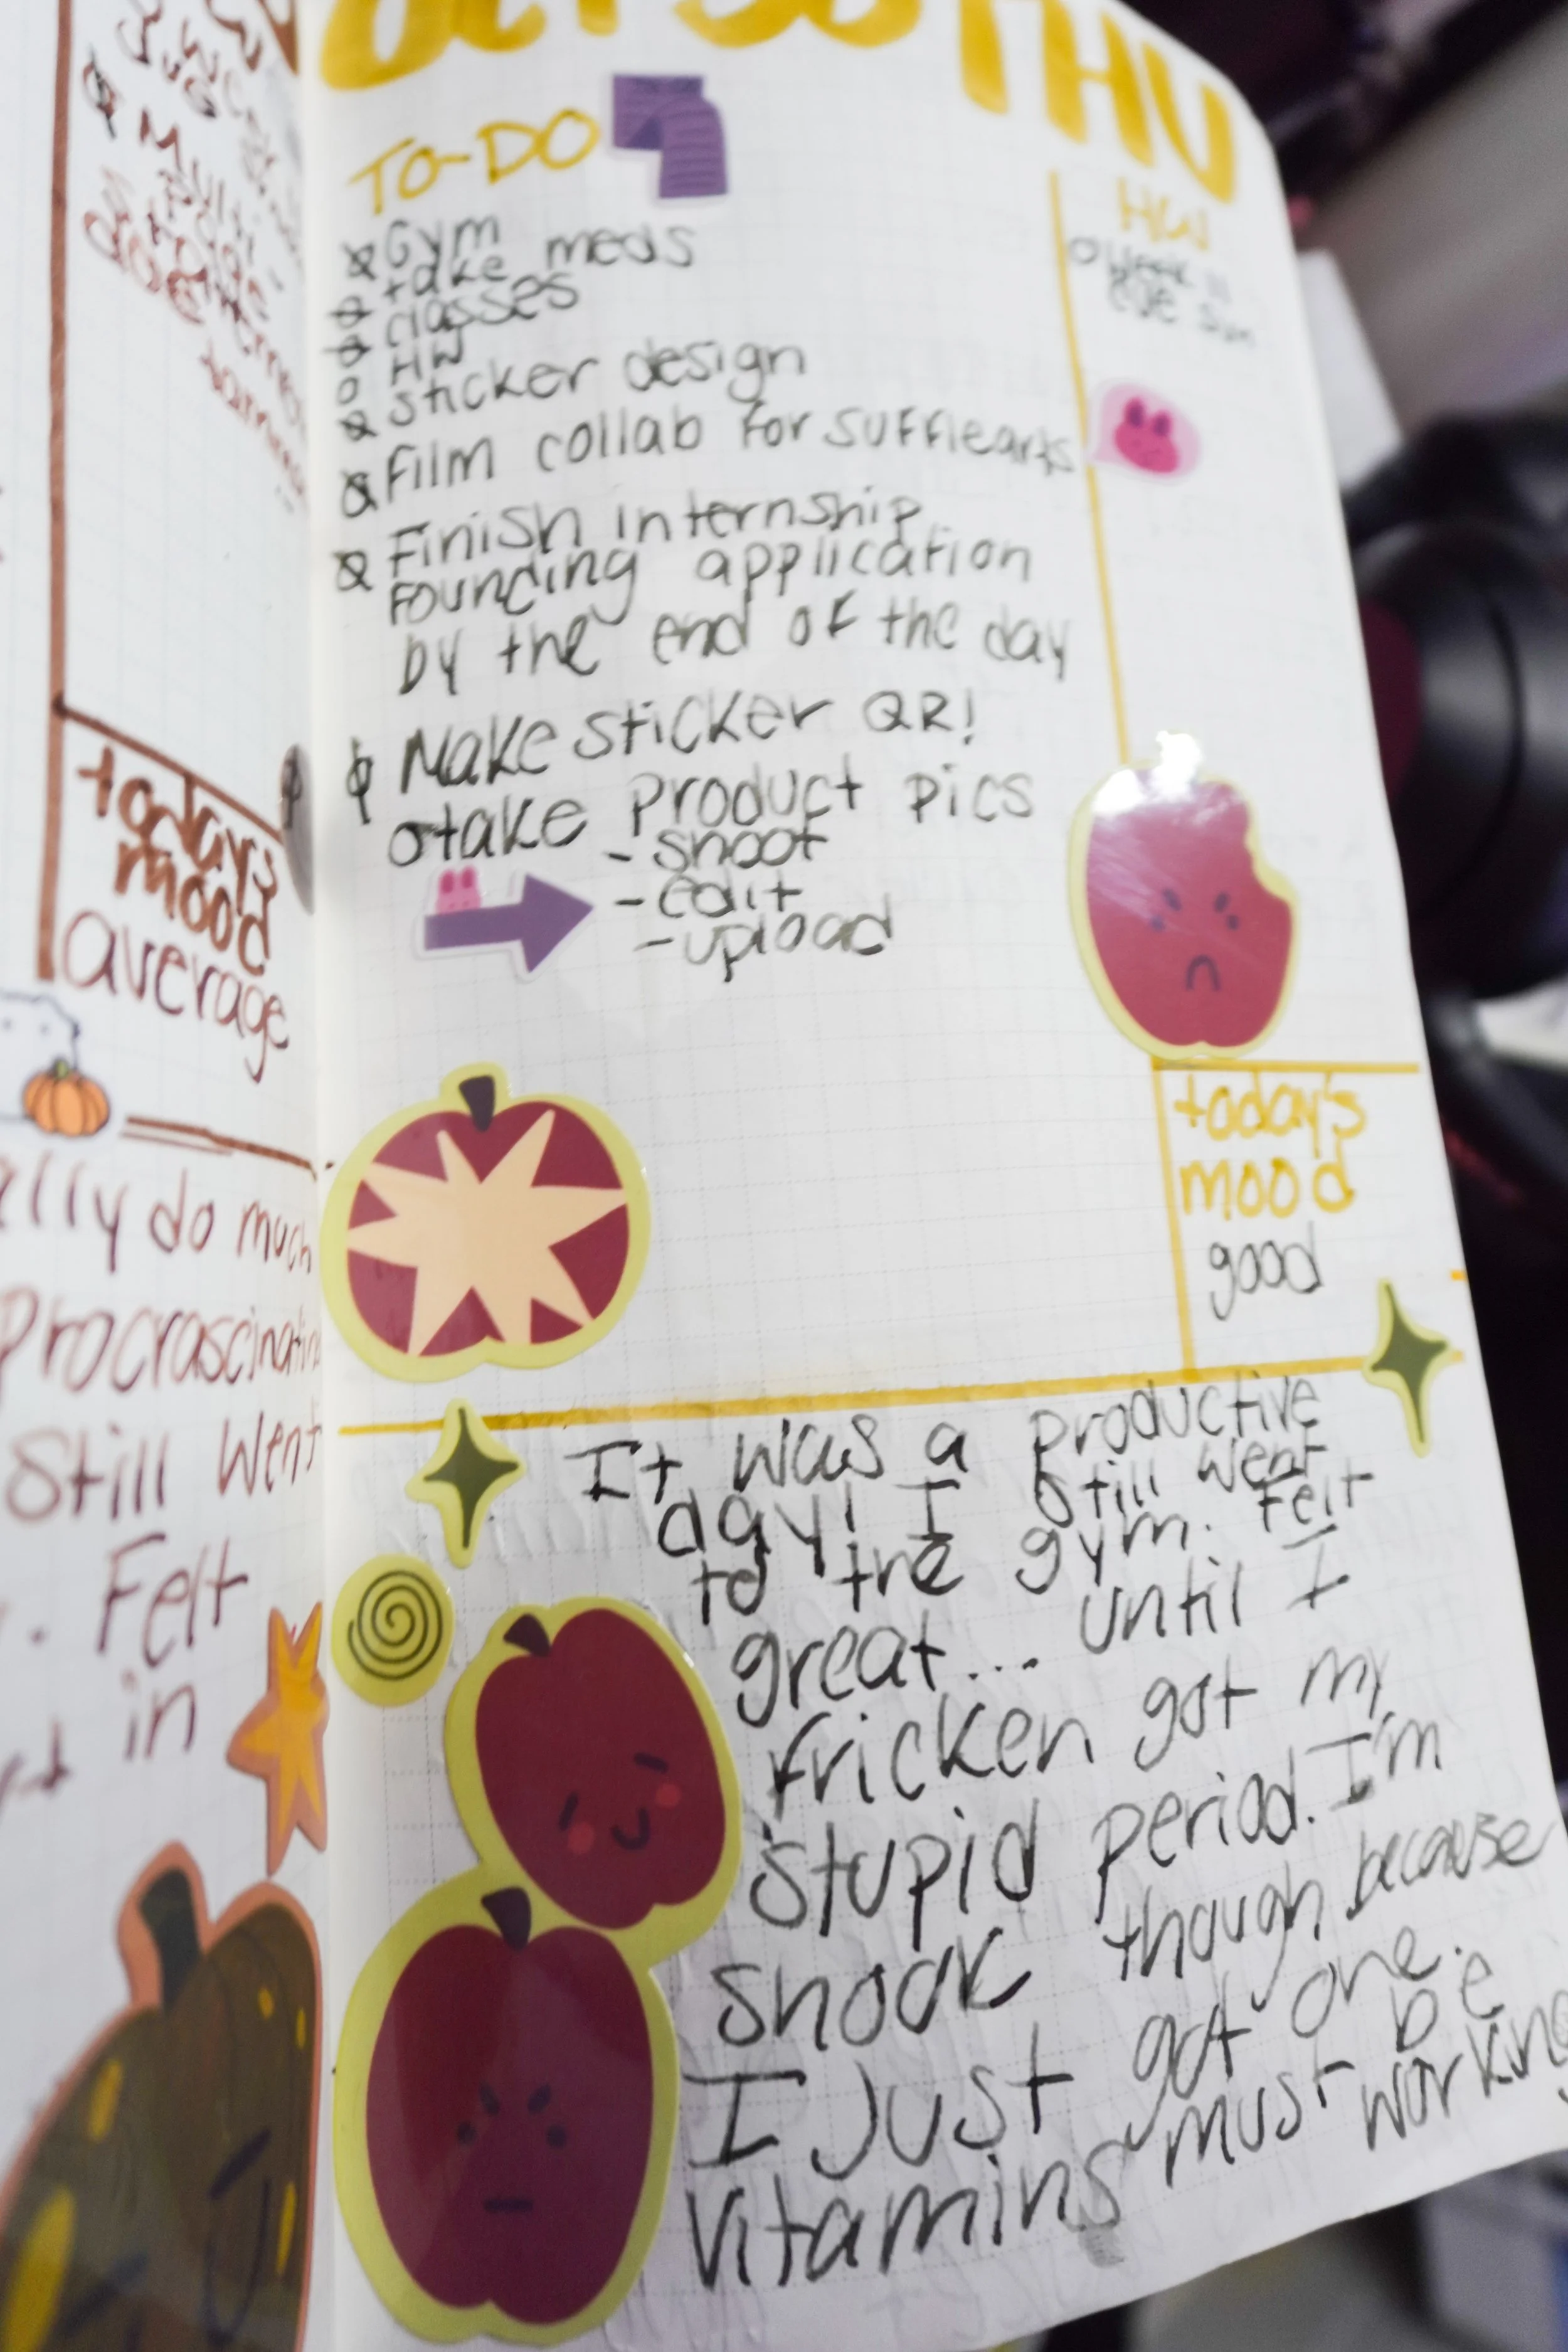 do much
still went
Felt
in
today's
mood
average
OCT 30 THU
TO-DO
Gym
take meds
classes
HW
sticker design
Film collab for sufflearts
Finish internship
Founding application
by the end of the day
Make sticker QR!
take product pics
- shoot
- edit
- upload
HW
Week 11
DUE Sun
today's
mood
good
It was a productive
day! I still went
to the gym. Felt
great... until I
fricken got my
stupid period. I'm
shook though because
I just got one.
Vitamins must be
working